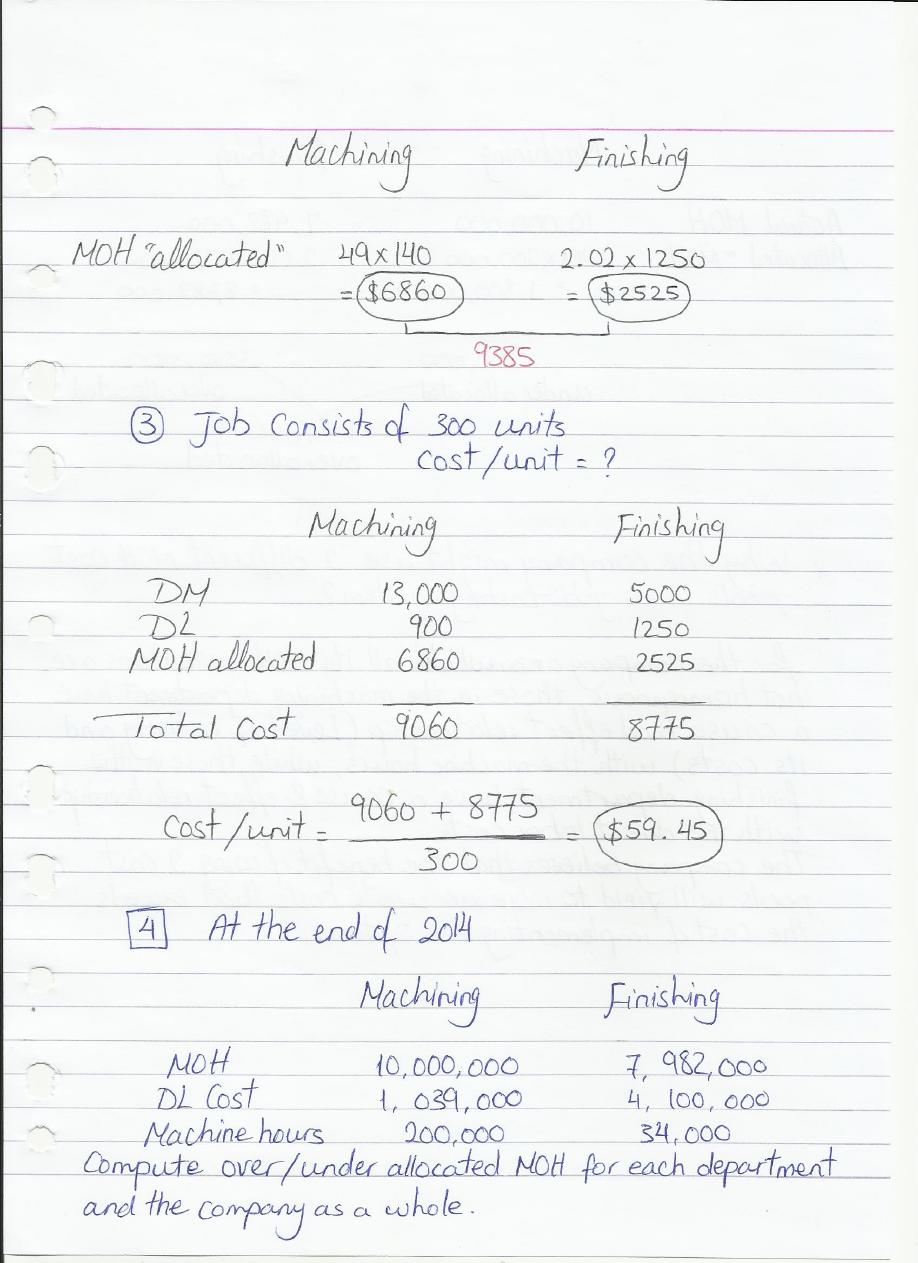 Machining Finishing
MOH "allocated" 49 x 140 2.02 x 1250
= $6860 = $2525
9385
3 Job Consists of 300 units
cost/unit = ?
Machining Finishing
DM 13,000 5000
DL 900 1250
MOH allocated 6860 2525
Total Cost 9060 8775
9060 + 8775
Cost/unit = = $59.45
300
4 At the end of 2014
Machining Finishing
MOH 10,000,000 7,982,000
DL Cost 1,039,000 4,100,000
Machine hours 200,000 34,000
Compute over/under allocated MOH for each department
and the company as a whole.